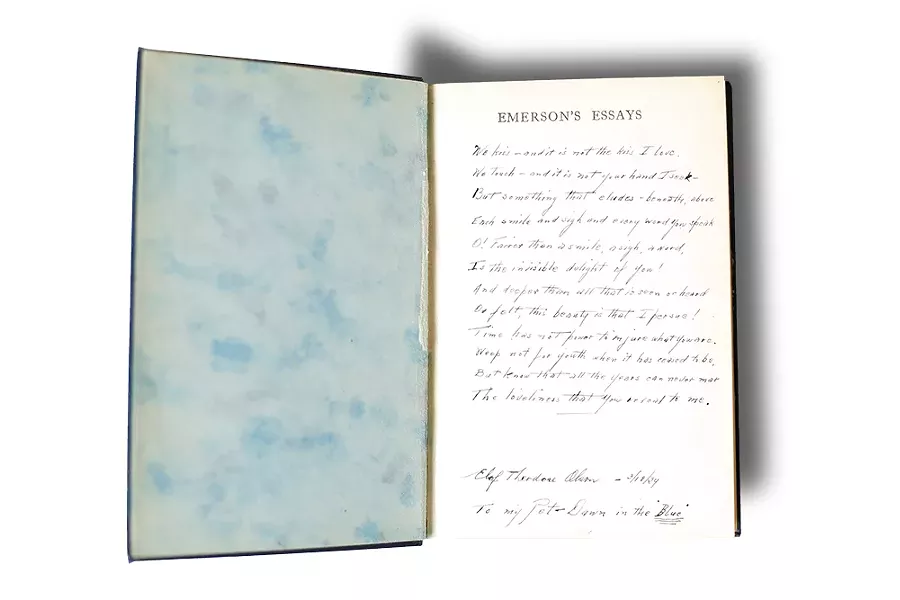 EMERSON'S ESSAYS
We kiss – and it is not the kiss I love.
We touch – and it is not your hand I seek –
But something that eludes – beneath, above
Each smile and sigh and every word you speak
O! Fairer than a smile, a sigh, a word,
Is the invisible delight of you!
And deeper than all that is seen or heard
Or felt, this beauty is that I persue!
Time has not power to injure what you are.
Weep not for youth when it has ceased to be,
But know that all the years can never mar
The loveliness that you reveal to me.
Elof Theodore Olson –
To my Pet – Dawn in the "Blue"